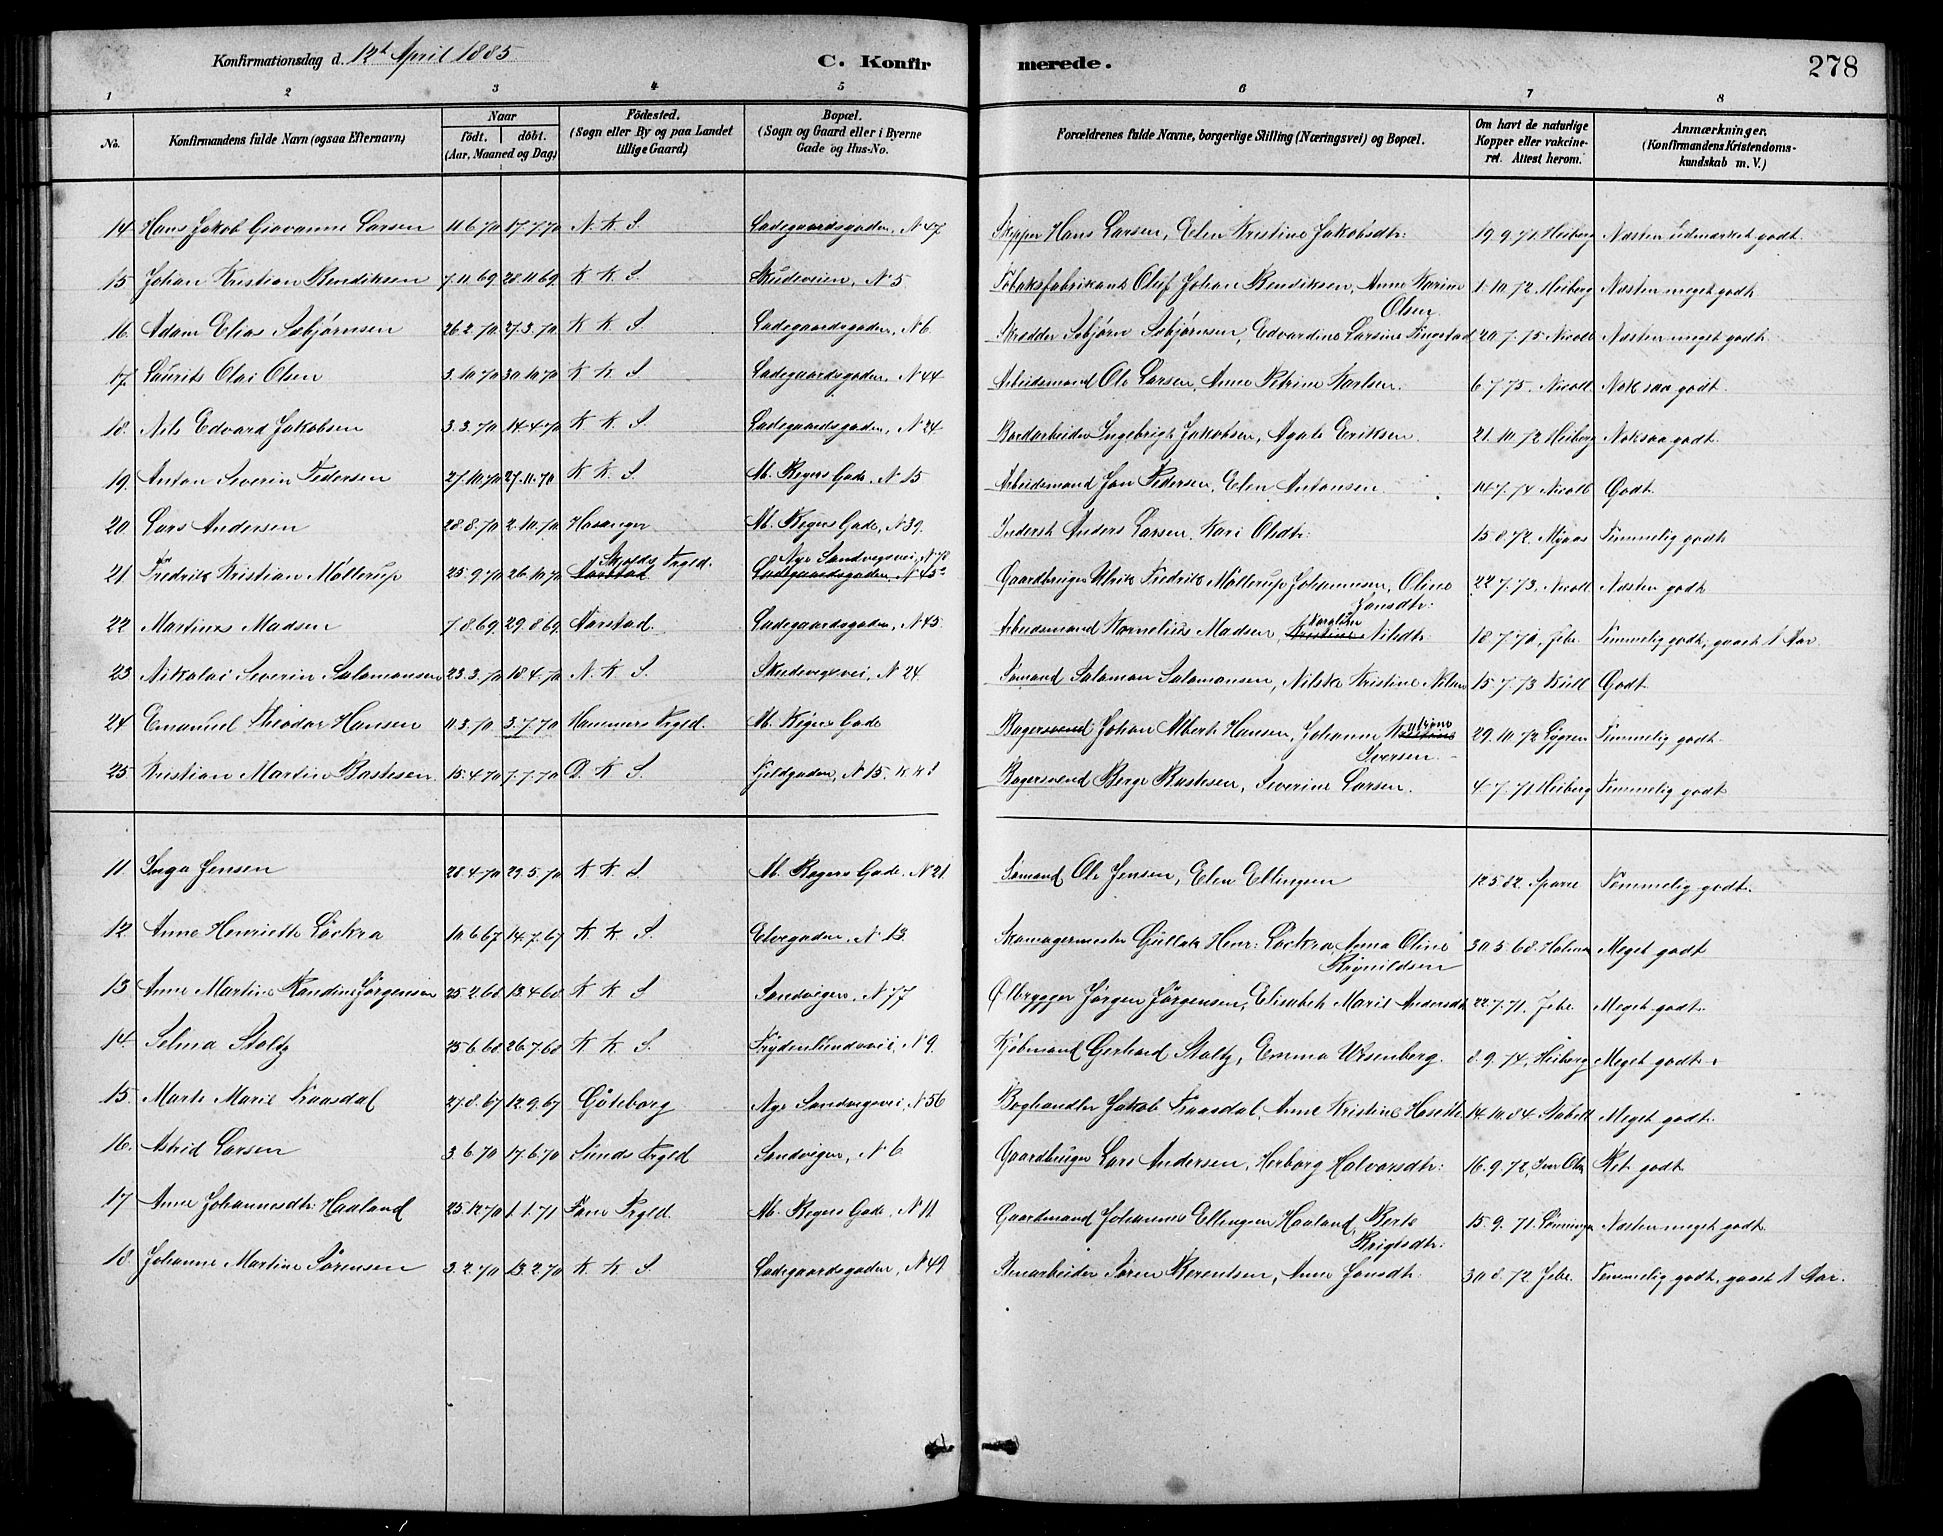 Konfirmationsdag d. 12te April 1885. C. Konfirmerede. 278
1 2 3 4 5 6 7 8
No. Konfirmandens fulde Navn (ogsaa Efternavn) Naar født. døbt. (Aar, Maaned og Dag) Fødested. (Sogn eller By og paa Landet tillige Gaard) Bopæl. (Sogn og Gaard eller i Byerne Gade og Hus-No. Forældrenes fulde Navne, borgerlige Stilling (Næringsvei) og Bopæl. Om havt de naturlige Kopper eller vakcineret. Attest herom. Anmærkninger. (Konfirmandens Kristendomskundskab m. V.)
14 Hans Jakob Giovanne Larsen 11.6.70 17.7.70 N. K. S. Ladegaardsgaden, N 47 Skipper Hans Larsen, Elen Kristine Jakobsdtr: 19.9.71 Heiberg Næsten udmærket godt.
15 Johan Kristian Bendiksen 7.11.69 28.11.69 K. K. S. Skudeveien, N 5 Tobaksfabrikant Oluf Johan Bendiksen, Anne Karine Olsen 1.10.72 Heiberg Næsten meget godt
16. Adam Elias Sebjørnsen 26.2.70 27.3.70 K. K. S. Ladegaardsgaden, N 6 Skrædder Sebjørn Sebjørnsen, Edvardine Larsine Fingstad 20.7.75 Nicoll Næsten meget godt.
17. Laurits Olai Olsen 3.10.70 30.10.70 K. K. S. Ladegaardsgaden, N 44 Arbeidsmand Ole Larsen, Anne Petrine Karlsen. 6.7.75. Nicoll Noksaa godt.
18. Nils Edvard Jakobsen 3.3.70 14.4.70 K. K. S. Ladegaardsgaden, N 24 Bordarbeider Ingebrigt Jakobsen, Agate Eriksen. 21.10.72 Heiberg Noksaa godt.
19. Anton Severin Pedersen 27.10.70 27.11.70 K. K. S. M. Kegers Gade, N 15 Arbeidsmand Jon Pedersen, Elen Antonsen 14.7.74 Nicoll Godt.
20 Lars Andersen 28.8.70 2.10.70 Hosanger M. Kegers Gade, N 39. Inderst Anders Larsen, Kari Olsdtr: 15.8.72. Mjaas Temmelig godt
21. Fredrik Kristian Møllerup 25.9.70 26.10.70 Aarstad Skjolds Prgld. Ladegaardsgaden, N 45a Nye Sandvigsvei, N 78 Gaardbruger Ulrik Fredrik Møllerup Johannesen, Oline Hansdtr: 22.7.73. Nicoll Næsten godt
22 Martines Madsen 7.8.69 29.8.69 Aarstad. Ladegaardsgaden, N 45. Arbeidsmand Kornelius Madsen, Kristine Nilsdtr: 18.7.70. Jebe. Temmelig godt, gaaet 1 Aar.
23. Nikolai Severin Salamonsen 23.3.70 18.4.70 N. K. S. Skudevigsvei, N 24 Sømand Salamon Salamonsen, Nilske Kristine Nilsen 15.7.73 Kull Godt
24 Emanuel Theodor Hansen 11.3.70 3.7.70 Hammers Prgld. M. Kegers Gade Bagersvend Johan Albert Hansen, Johanne Iversen. 29.10.72 Lygren Temmelig godt.
25. Kristian Martin Bastesen 15.4.70 7.7.70 D. K. S. Fjeldgaden, N 15. K K S Bagersvend Berge Bastesen, Severine Larsen. 4.7.71 Heiberg Temmelig godt
11. Inga Jensen 28.4.70 29.5.70 K. K. S. M. Kegers Gade, N 21. Sømand Ole Jensen, Elen Ellingsen 12.5.82. Sparre Temmelig godt.
12. Anne Henriette Løckra 10.6.67 14.7.67 K. K. S. Elvegaden, N 13. Skomagermester Gullak Henr: Løckra, Anna Oline Brynildsen 30.5.68. Holme Meget godt
13. Anne Martine Randine Jørgensen 25.2.68 13.4.68 K. K. S. Sandvigen, N 77 Ølbrygger Jørgen Jørgensen, Elisabet Marie Andersdtr 22.7.71. Jebe. Meget godt.
14. Selma Stoltz 25.6.68 26.7.68 K. K. S. Frydenlundsvei, N 9. Kjøbmand Gerhard Stoltz, Emma Wesenberg. 8.9.74. Heiberg Meget godt.
15. Marte Marie Traasdal 27.8.67 12.9.67 Gøteborg Nye Sandvigsvei, N 56 Boghandler Jakob Traasdal, Anne Kristine 14.10.84. Meget godt.
16. Astrid Larsen 3.6.70 17.6.70 Sunds Prgld Sandvigen, N 6 Gaardbruger Lars Andersen, Herborg Halvorsdtr: 16.9.72, Iver Ols. Ret godt
17 Anne Johannesdtr: Haaland 25.12.70 1.1.71 Fane Prgld. M. Kegers Gade, N 11 Gaardmand Johannes Ellingsen Haaland, Berte Brigtsdtr: 15.9.71. Næsten meget godt
18. Johanne Martine Sørensen 3.2.70 13.2.70 K. K. S. Ladegaardsgaden, N 49 Stenarbeider Søren Berentsen, Anne Jonsdtr: 30.8.72 Jebe. Temmelig godt, gaaet 1 Aar.